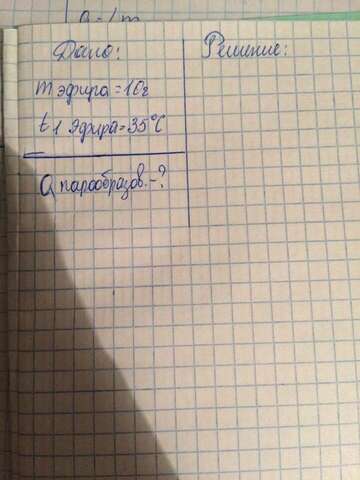 Q=Lm
Дано:
Решение:
m эфира = 10г
t1 эфира = 35°C
Q парообразов. - ?